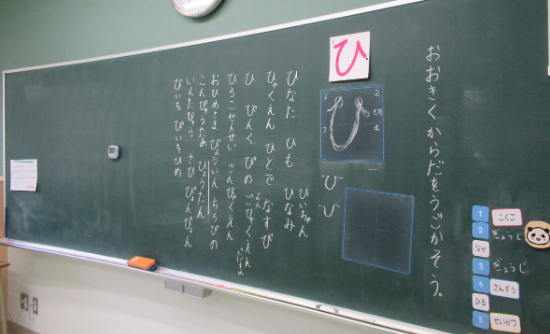 おおきくからだをうごかそう。
ひ
1 2
3 4
ひ
び
ぴ
ひなた ひも ひいちゃん ひなみ
ひゃくえん ひとで なすび
ひ ぴんく ぴの
ひろこせんせい さんびゃくえん
おひめさま びょういん
こんぴゅうたあ ひょうたん
いんたびゅう さび ぴょんぴょん
1 こくご
2 ぎょうじ
なか
3 ぎょうじ
4 さんすう
ひる
5 せいかつ